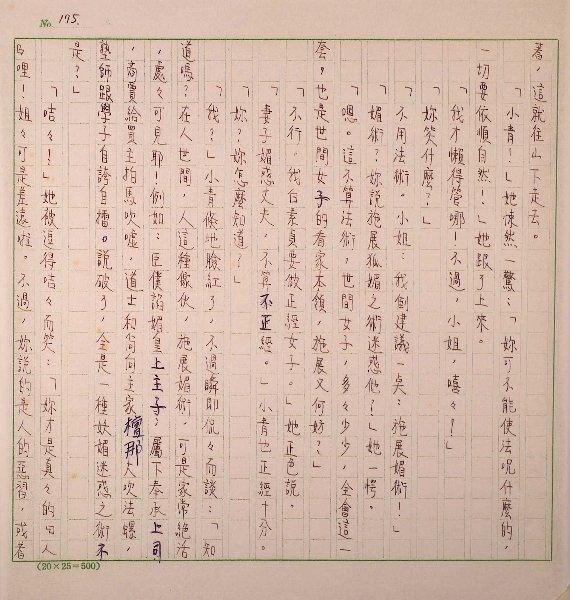 No. 195.
著，這就往山下走去。
「小青！」她悚然一驚：「妳可不能使法呢什麼的，
一切要依順自然！」她跟了上來。
「我才懶得管哪！不過，小姐，嘻々！」
「妳笑什麼？」
「不用法術。小姐：我創建議一桌：施展媚術！」
「媚術？妳說施展狐媚之術迷惑他？」她一愕。
「嗯。這不算法術，世間女子，多々少少，全會這一
套。也是世間女子的看家本領，施展又何妨？」
「不行，我白素貞要做正經女子。」她正色說。
「妻子媚惑丈夫，不算不正經。」小青也正經十分。
「妳？妳怎麼知道？」
「我？」小青倏地臉紅了，不過瞬即侃々而談：「知
道嗎？在人世間，人這種傢伙，施展媚術，可是家常絕活
，處々可見耶！例如：臣僕諂媚皇上主子；屬下奉承上司
，商賈給買主拍馬吹噓，道士和尚向主家檀那大吹法螺，
塾師跟學子自誇自擂。說破了，全是一種妖媚迷惑之術不
是？」
「咭々！」她被逗得咭々而笑：「妳才是真々的
哩！姐々可是差遠啦。不過，妳說的是人的惡習，或者
(20×25=500)